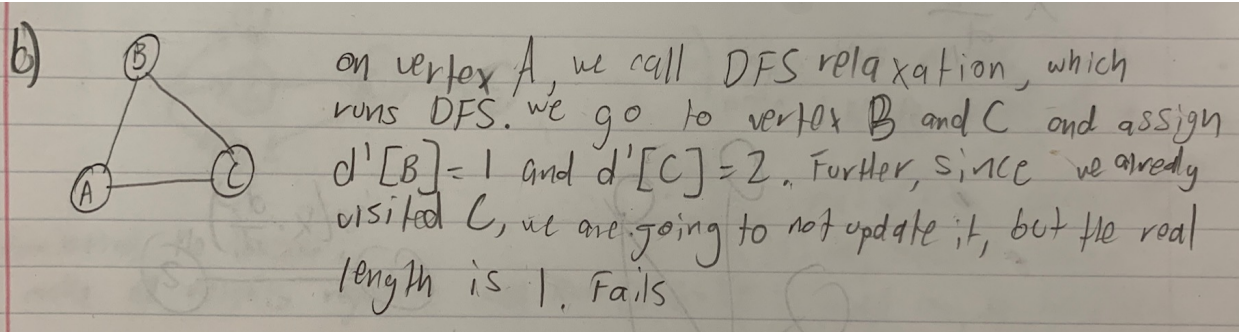 b)
B
A
C
on vertex A, we call DFS relaxation, which
runs DFS. we go to vertex B and C and assign
d'[B]=1 and d'[C]=2. Further, since we alredy
visited C, we are going to not update it, but the real
length is 1. Fails